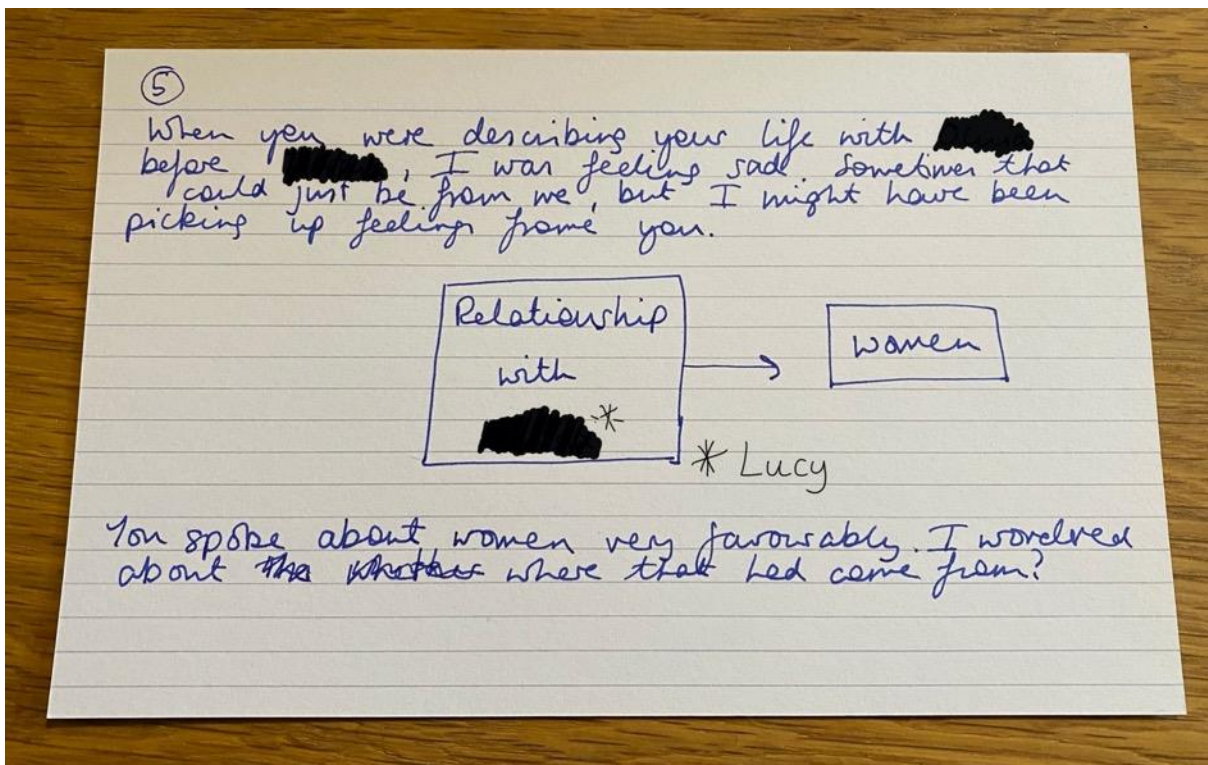 5
When you were describing your life with
before , I was feeling sad. Sometimes that
could just be from me, but I might have been
picking up feelings frome you.
Relationship
with
*
women
* Lucy
You spoke about women very favourably. I wondred
about the whether where that had come from?